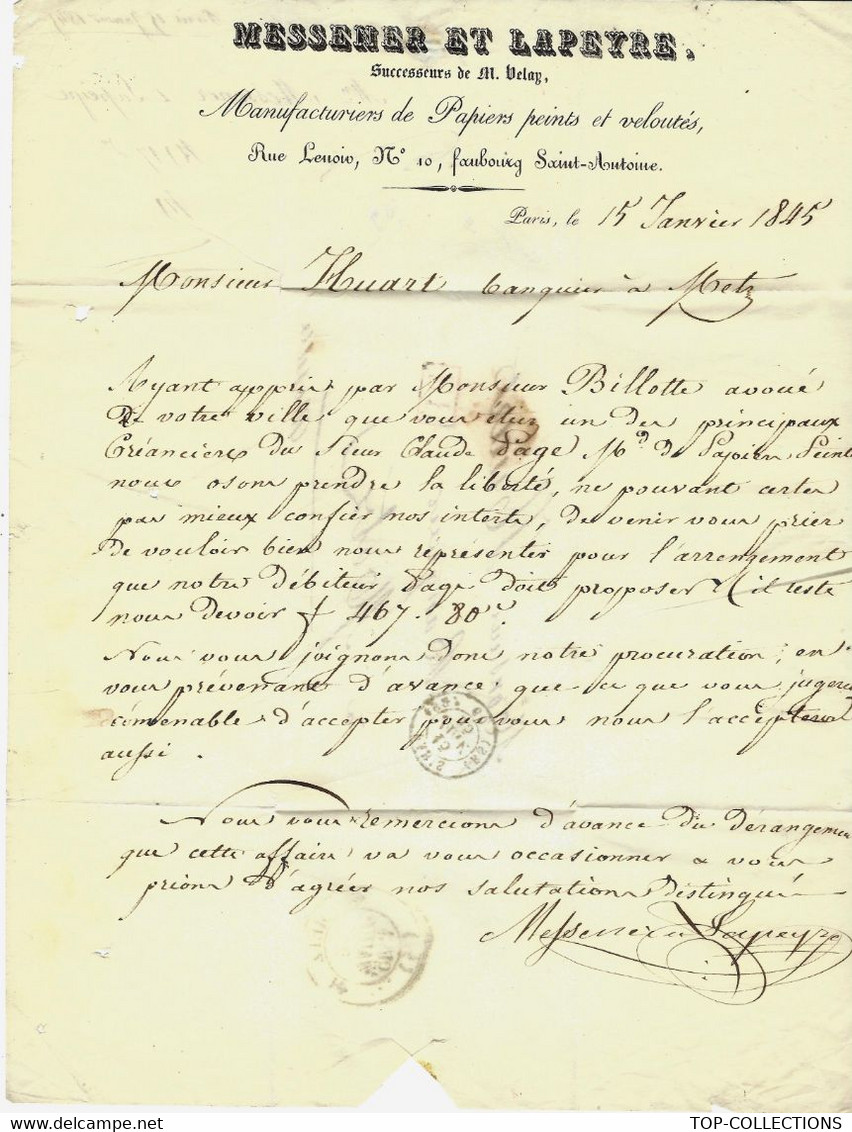 MESSENER ET LAPEYRE.
Successeurs de M. Velay,
Manufacturiers de Papiers peints et veloutés,
Rue Lenoir, N° 10, faubourg Saint-Antoine.
Paris, le 15 Janvier 1845
Monsieur Huart banquier à Metz
Ayant appris par Monsieur Billotte avoué
de votre ville que vous étiez un des principaux
Créanciers du Sieur Claude Pagé Md de Papiers Peints
nous osons prendre la liberté, ne pouvant certes
pas mieux confier nos interts, de venir vous prier
de vouloir bien nous réprésenter pour l'arrengement
que notre débiteur Pagé doit proposer (il reste
nous devoir f 467. 80c.
Nous vous joignons donc notre procuration, en
vous prévenant d'avance que ce que vous jugerez
convenable d'accepter pour vous nous l'accepterons
aussi.
Nous vous remercions d'avance du dérangement
que cette affaire va vous occasionner & vous
prions d'agréer nos salutations distingué
Messener et Lapeyre
TOP-COLLECTIONS